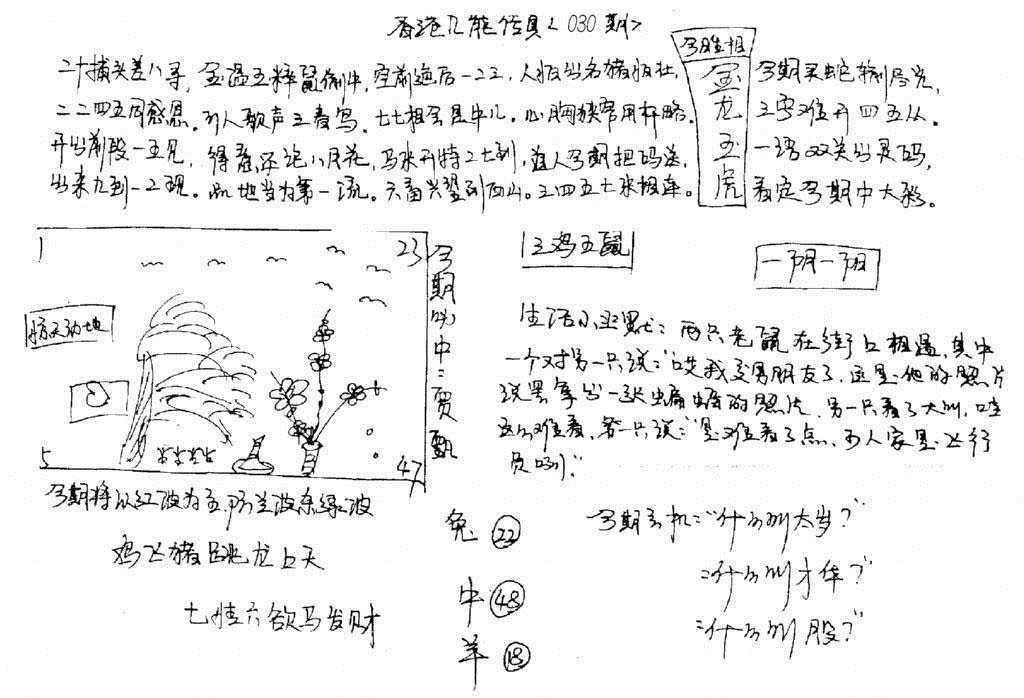 香港几能传真<030期>
今胜相
金龙玉虎
二十捕头差八寻,金温玉粹鼠偷牛,空前绝后一二三,人怕出名猪怕壮,
二二四五同感恩.引人歌声三春鸟.七七相会是牛儿.心胸狭窄用样略.
开出前段一五见,得意还说八月花,马来开特二七到,道人今期把码送,
出来九到一二现。此地当为第一流。六畜兴望到西山。三四五七来相连。
今期买蛇输尽光,
三字难开四五从。
一语双关出灵码,
看定今期中大彩。
1
23
惊天动地
5
47
今期必中:贾
三鸡五鼠
一阴一阳
生活小幽默:两只老鼠在街上相遇,其中
一个对另一只说:"哎我交男朋友了,这是他的照片
说罢拿出一张蝙蝠的照片,另一只看了大叫,哇
这么难看,第一只说:"是难看了点,可人家是飞行
员咧!"
今期将以红波为主,防兰波杀绿波
鸡飞猪跳龙上天
七情六欲马发财
兔 22
牛 48
羊 18
今期玄机:"什么叫太岁?"
:"什么叫才华?"
:"什么叫股?"